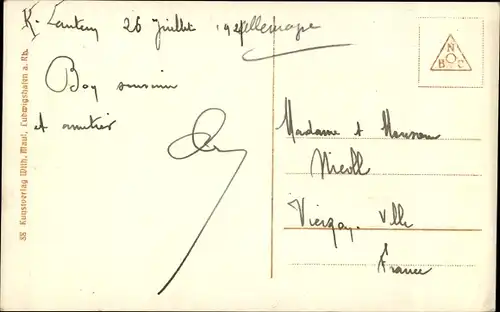 K. Lautern 26 Juillet Allemagne
Bon souvenir
et amitiés
Madame et Monsieur
Nicoll
Vierzon. Ville
France
N
B O C
58 Kunstverlag Wilh. Maul, Ludwigshafen a. Rh.